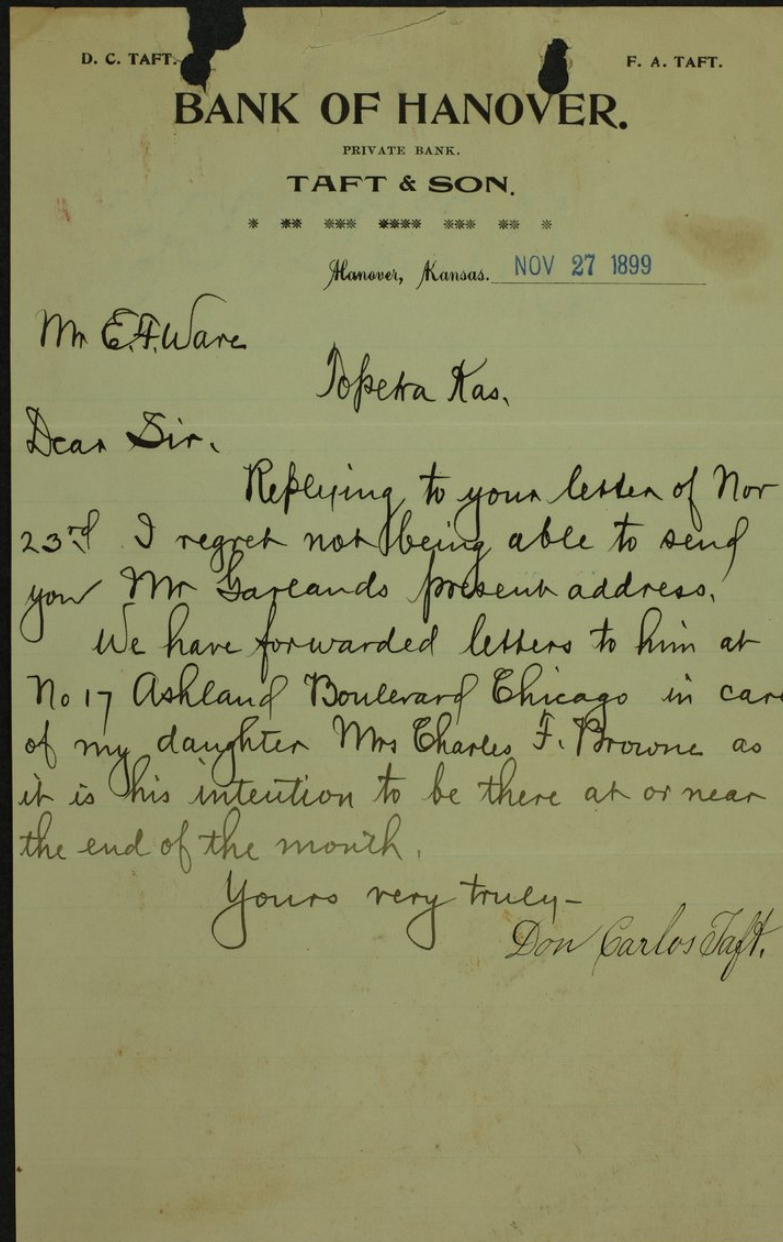 D. C. TAFT.
F. A. TAFT.
BANK OF HANOVER.
PRIVATE BANK.
TAFT & SON.
Hanover, Kansas. NOV 27 1899
Mr E. F. Ware
Topeka Kas.
Dear Sir.
Replying to your letter of Nov
23rd I regret not being able to send
you Mr Garlands present address.
We have forwarded letters to him at
No 17 Ashland Boulevard Chicago in care
of my daughter Mrs Charles F. Browne as
it is his intention to be there at or near
the end of the month.
Yours very truly-
Don Carlos Taft.